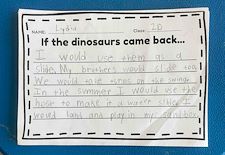 NAME: Lydia Class: 2D
If the dinosaurs came back...
I would use them as a
slide. My brothers would slide too.
We would take turns on the swings.
In the summer I would use the
hose to make it a water slide. I
would land and play in my sandbox.